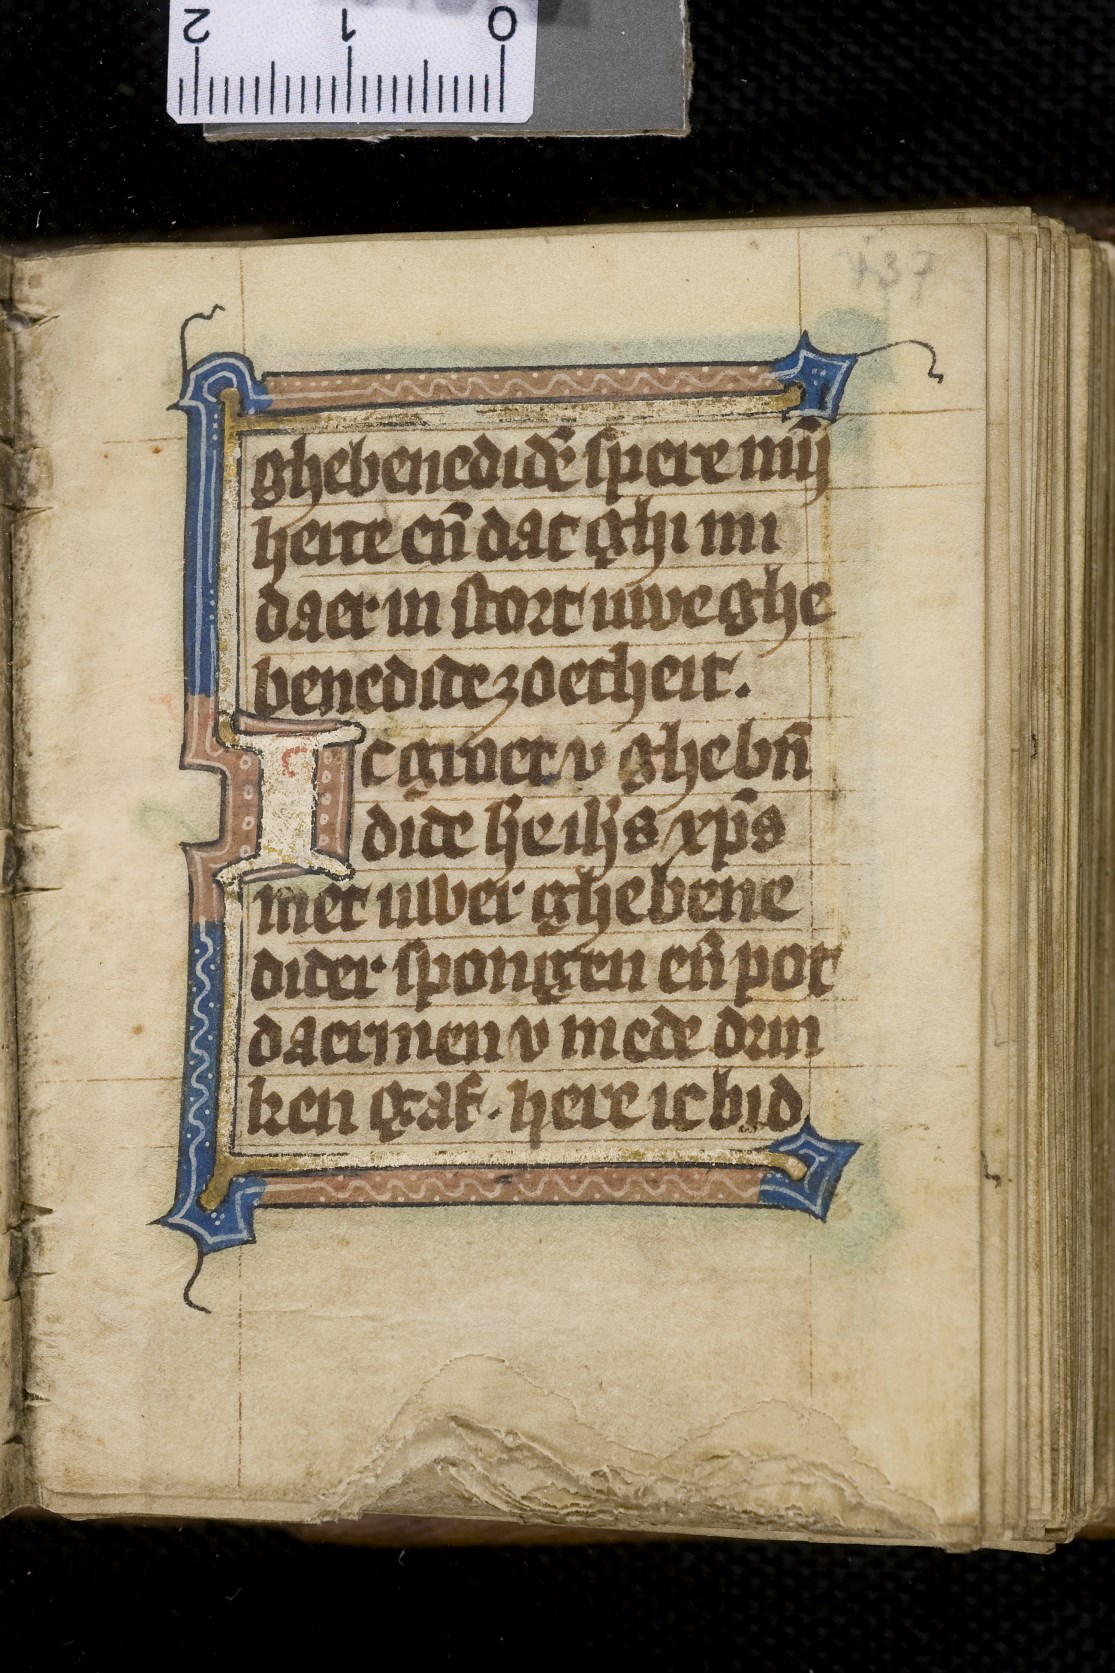 2 1 0
437
ghebenedidē spere mijn
herte en̄ dat ghi mi
daer in stort uwe ghe
benedide zoetheit.
Ic gruet v ghebn̄
dide h̄e ih̄s xp̄s
met uwer ghebene
dider spongen en̄ pot
daermen v mede drin
ken gaf. here ic bid